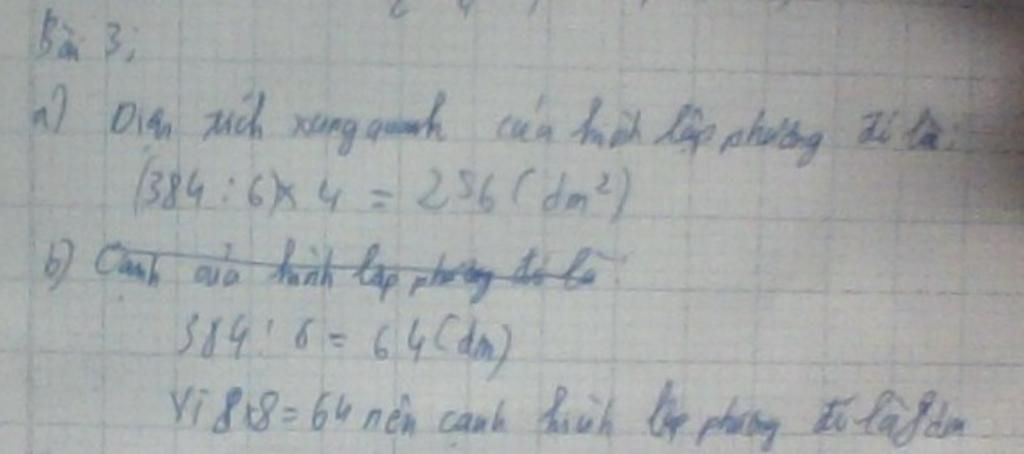 Bài 3;
a) Diện tích xung quanh của hình lập phương đó là:
(384 : 6) x 4 = 256 ( dm²)
b) Cạnh của hình lập phương đó là:
384 : 6 = 64 (dm)
Vì 8x8 = 64 nên cạnh hình lập phương đó là 8 dm